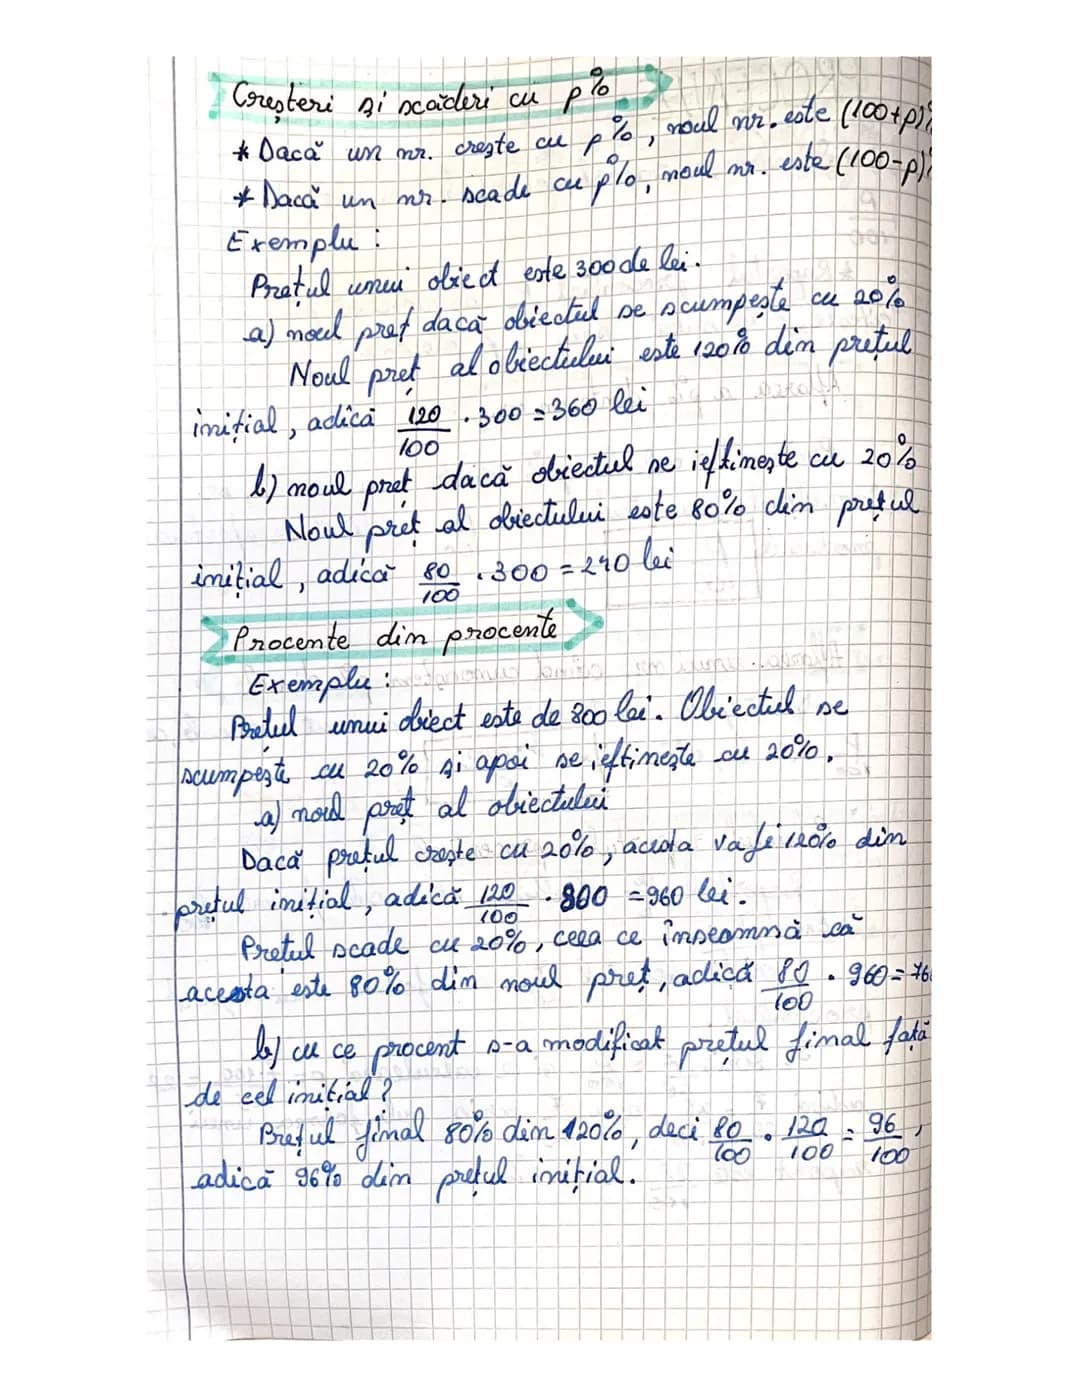 Creșteri și scăderi cu p%
* Dacă un nr. crește cu p%, noul nr. este (100+p)%
* Dacă un nr. scade cu p%, noul nr. este (100-p)%
Exemplu :
Prețul unui obiect este 300 de lei.
a) noul preț dacă obiectul se scumpește cu 20%
Noul preț al obiectului este 120% din prețul
inițial, adică 120/100 · 300 = 360 lei
b) noul preț dacă obiectul se ieftinește cu 20%
Noul preț al obiectului este 80% din prețul
inițial, adică 80/100 · 300 = 240 lei
Procente din procente
Exemplu :
Prețul unui obiect este de 800 lei. Obiectul se
scumpește cu 20% și apoi se ieftinește cu 20%.
a) noul preț al obiectului
Dacă prețul crește cu 20%, acesta va fi 120% din
prețul inițial, adică 120/100 · 800 = 960 lei.
Prețul scade cu 20%, ceea ce înseamnă că
acesta este 80% din noul preț, adică 80/100 · 960 = 76
b) cu ce procent s-a modificat prețul final față
de cel inițial ?
Prețul final 80% din 120%, deci 80/100 · 120/100 = 96/100,
adică 96% din prețul inițial.